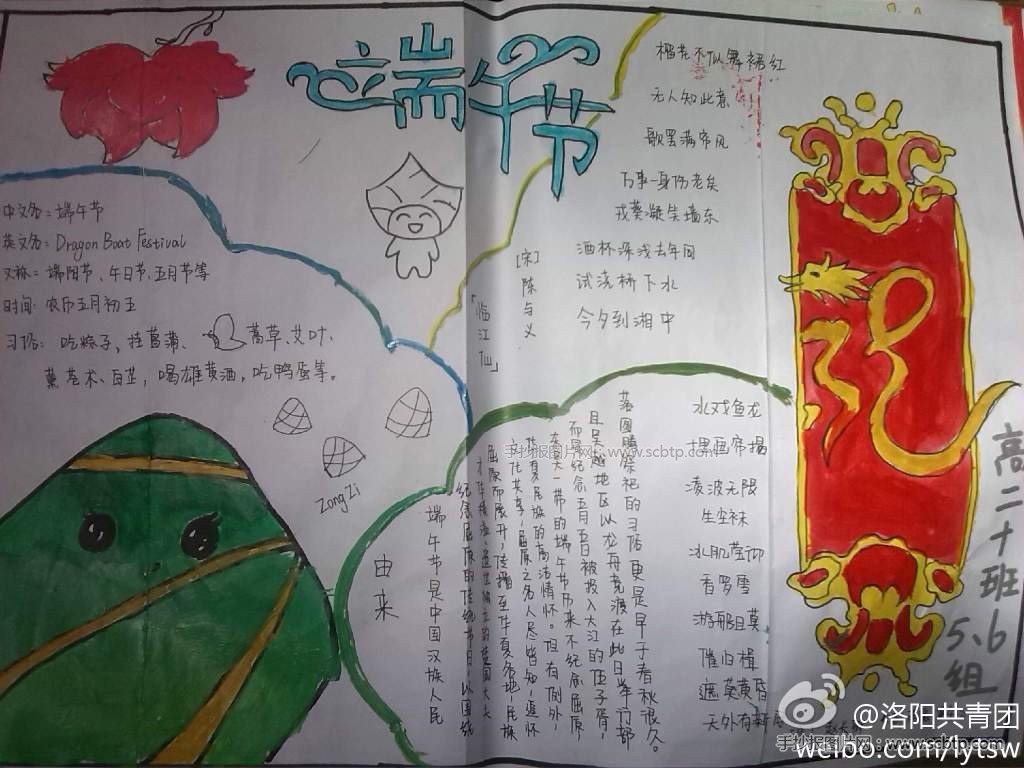 端午节
中文名：端午节
英文名：Dragon Boat Festival
又称：端阳节、午日节、五月节等
时间：农历五月初五
习俗：吃粽子，挂菖蒲、蒿草、艾叶、
薰苍术、白芷，喝雄黄酒，吃鸭蛋等。
ZongZi
榴花不似舞裙红
无人知此意
歌罢满帘风
万事一身伤老矣
戎葵凝笑墙东
酒杯深浅去年同
试浇桥下水
今夕到湘中
[宋]陈与义
「临江仙」
由来
端午节是中国汉族人民
纪念屈原的传统节日，以围绕
屈原而展开，传播至华夏各地，民族
文化共享，屈原之名人尽皆知，追怀
华夏民族的高洁情怀。但有例外，
东吴一带的端午节历来不纪念屈原，
而是纪念五月五日被投入大江的伍子胥，
且吴越地区以龙舟竞渡在此日举行部
落图腾祭祀的习俗更是早于春秋很久。
水戏鱼龙
凌波无限
生尘袜
冰肌莹
香罗雪
游船且莫
催归楫
遮莫黄昏
天外有新
高二十班
5、6组
手抄报图片网：www.scbtp.com
@洛阳共青团
weibo.com/lytsw